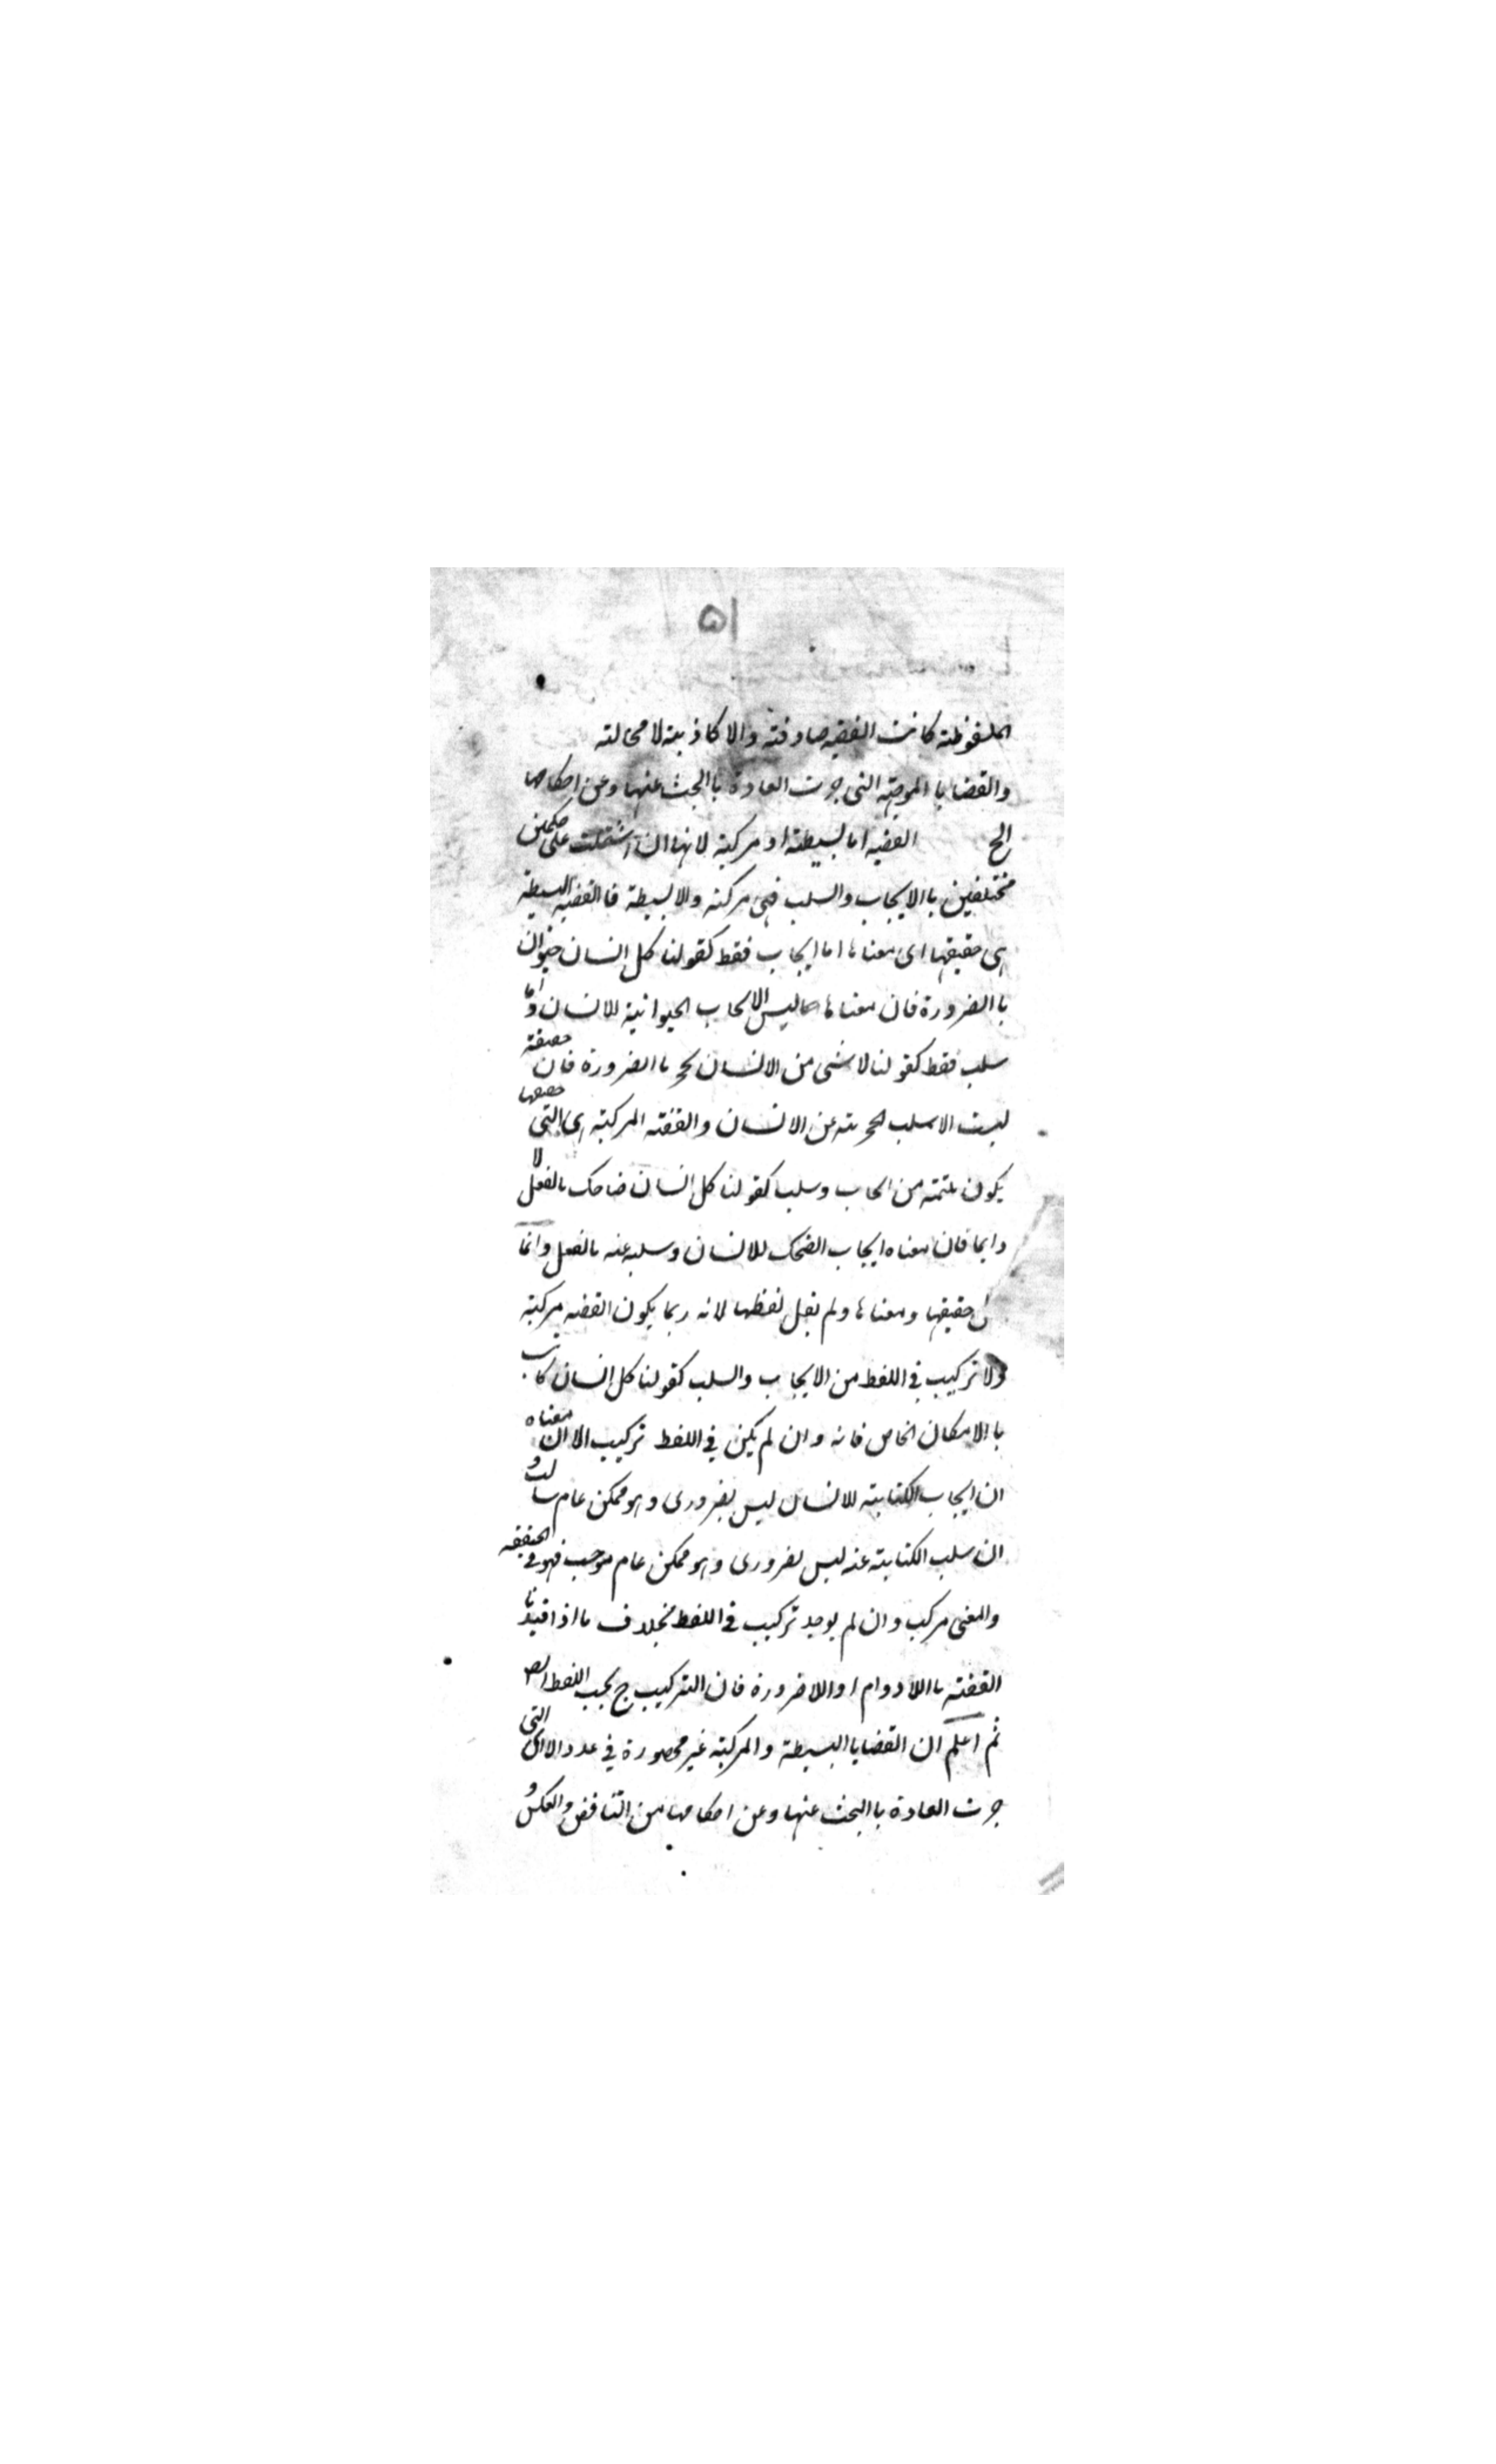 ۱۵
الملفوظة كانت القضية صادقة والا كاذبة لا محالة
والقضايا الموجهة التى جرت العادة باالبحث عنها وعن احكامها
الخ القضية اما بسيطة او مركبة لانها ان اشتملت على حكمين
مختلفين باالايجاب والسلب فهى مركبة والا بسيطة فاالقضية البسيطة
هى حقيقتها اى معناها اما ايجاب فقط كقولنا كل انسان حيوان
باالضرورة فان معناها ليس الا ايجاب الحيوانية للانسان واما
سلب فقط كقولنا لا شى من الانسان بحجر باالضرورة فان حقيقة
ليست الا سلب الحجرية عن الانسان والقضية المركبة هى التى حقيقتها
يكون ملتئمة من ايجاب وسلب كقولنا كل انسان ضاحك بالفعل لا
دايما فان معناه ايجاب الضحك للانسان وسلبه عنه بالفعل وانما
حقيقتها ومعناها ولم يقل لفظها لانه ربما يكون القضية مركبة
ولا تركيب فى اللفظ من الايجاب والسلب كقولنا كل انسان كاتب
باالامكان الخاص فانه وان لم يكن فى اللفظ تركيب الا ان معناه
ان ايجاب الكتابة للانسان ليس بضرورى وهو ممكن عام سالب و
ان سلب الكتابة عنه ليس بضرورى وهو ممكن عام موجب فهو فى الحقيقة
والمعنى مركب وان لم يوجد تركيب فى اللفظ بخلاف ما اذا قيدنا
القضية باللادوام او اللاضرورة فان التركيب ح بحب اللفظ ايض
ثم اعلم ان القضايا البسيطة والمركبة غير محصورة فى عدد الا ان التى
جرت العادة باالبحث عنها وعن احكامها من التناقض والعكس و